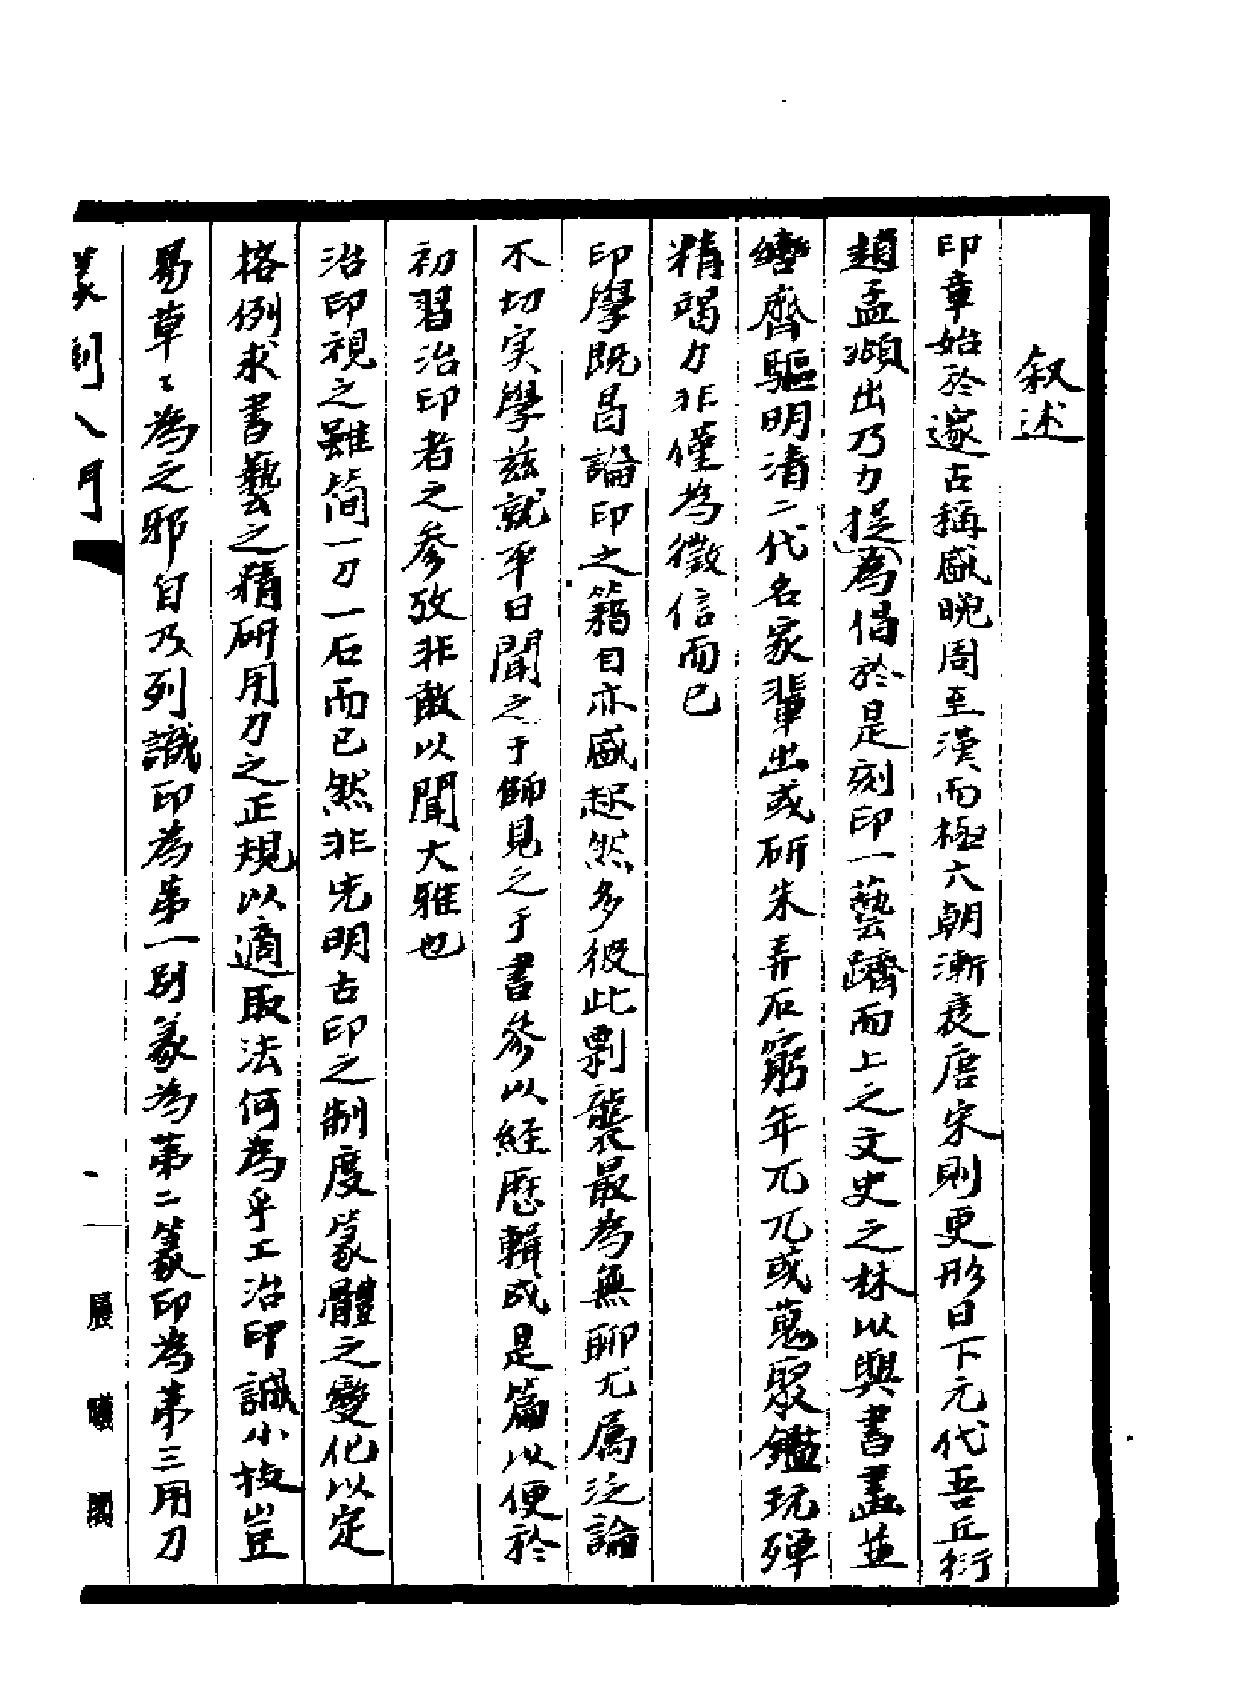 叙述
印章始於邃古稱盛晚周至漢而極六朝漸衰唐宋則更形日下元代吾丘衍
趙孟頫出乃力提(為)倡於是刻印一藝躋而上之文史之林以與書畫並
轡齊驅明清二代名家輩出或研朱弄石窮年兀兀或蒐聚鑑玩殫
精竭力非僅為徵信而已
印學既昌論印之籍目亦盛起然多彼此剽襲最為無聊尤属泛論
不切实學茲就平日聞之于師見之于書參以経歷輯成是篇以便於
初習治印者之參攷非敢以聞大雅也
治印視之雖简一刀一石而已然非先明古印之制度篆體之變化以定
格例求書藝之精研用刀之正規以適取法何為乎工治印誠小技豈
易草々為之邪自乃列識印為第一別篆為第二篆印為第三用刀
篆刻入門